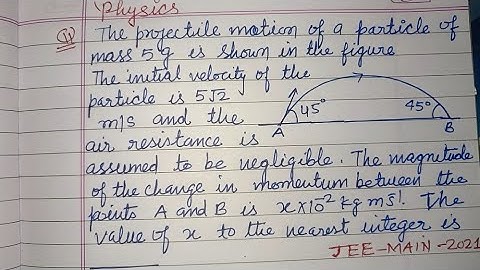 Physics
Q The projectile motion of a particle of
mass 5 g is shown in the figure
The initial velocity of the
particle is 5√2
m/s and the
45° 45°
A B
air resistance is
assumed to be negligible. The magnitude
of the change in momentum between the
points A and B is x×10⁻² kg ms⁻¹. The
value of x to the nearest integer is
JEE-MAIN-2021